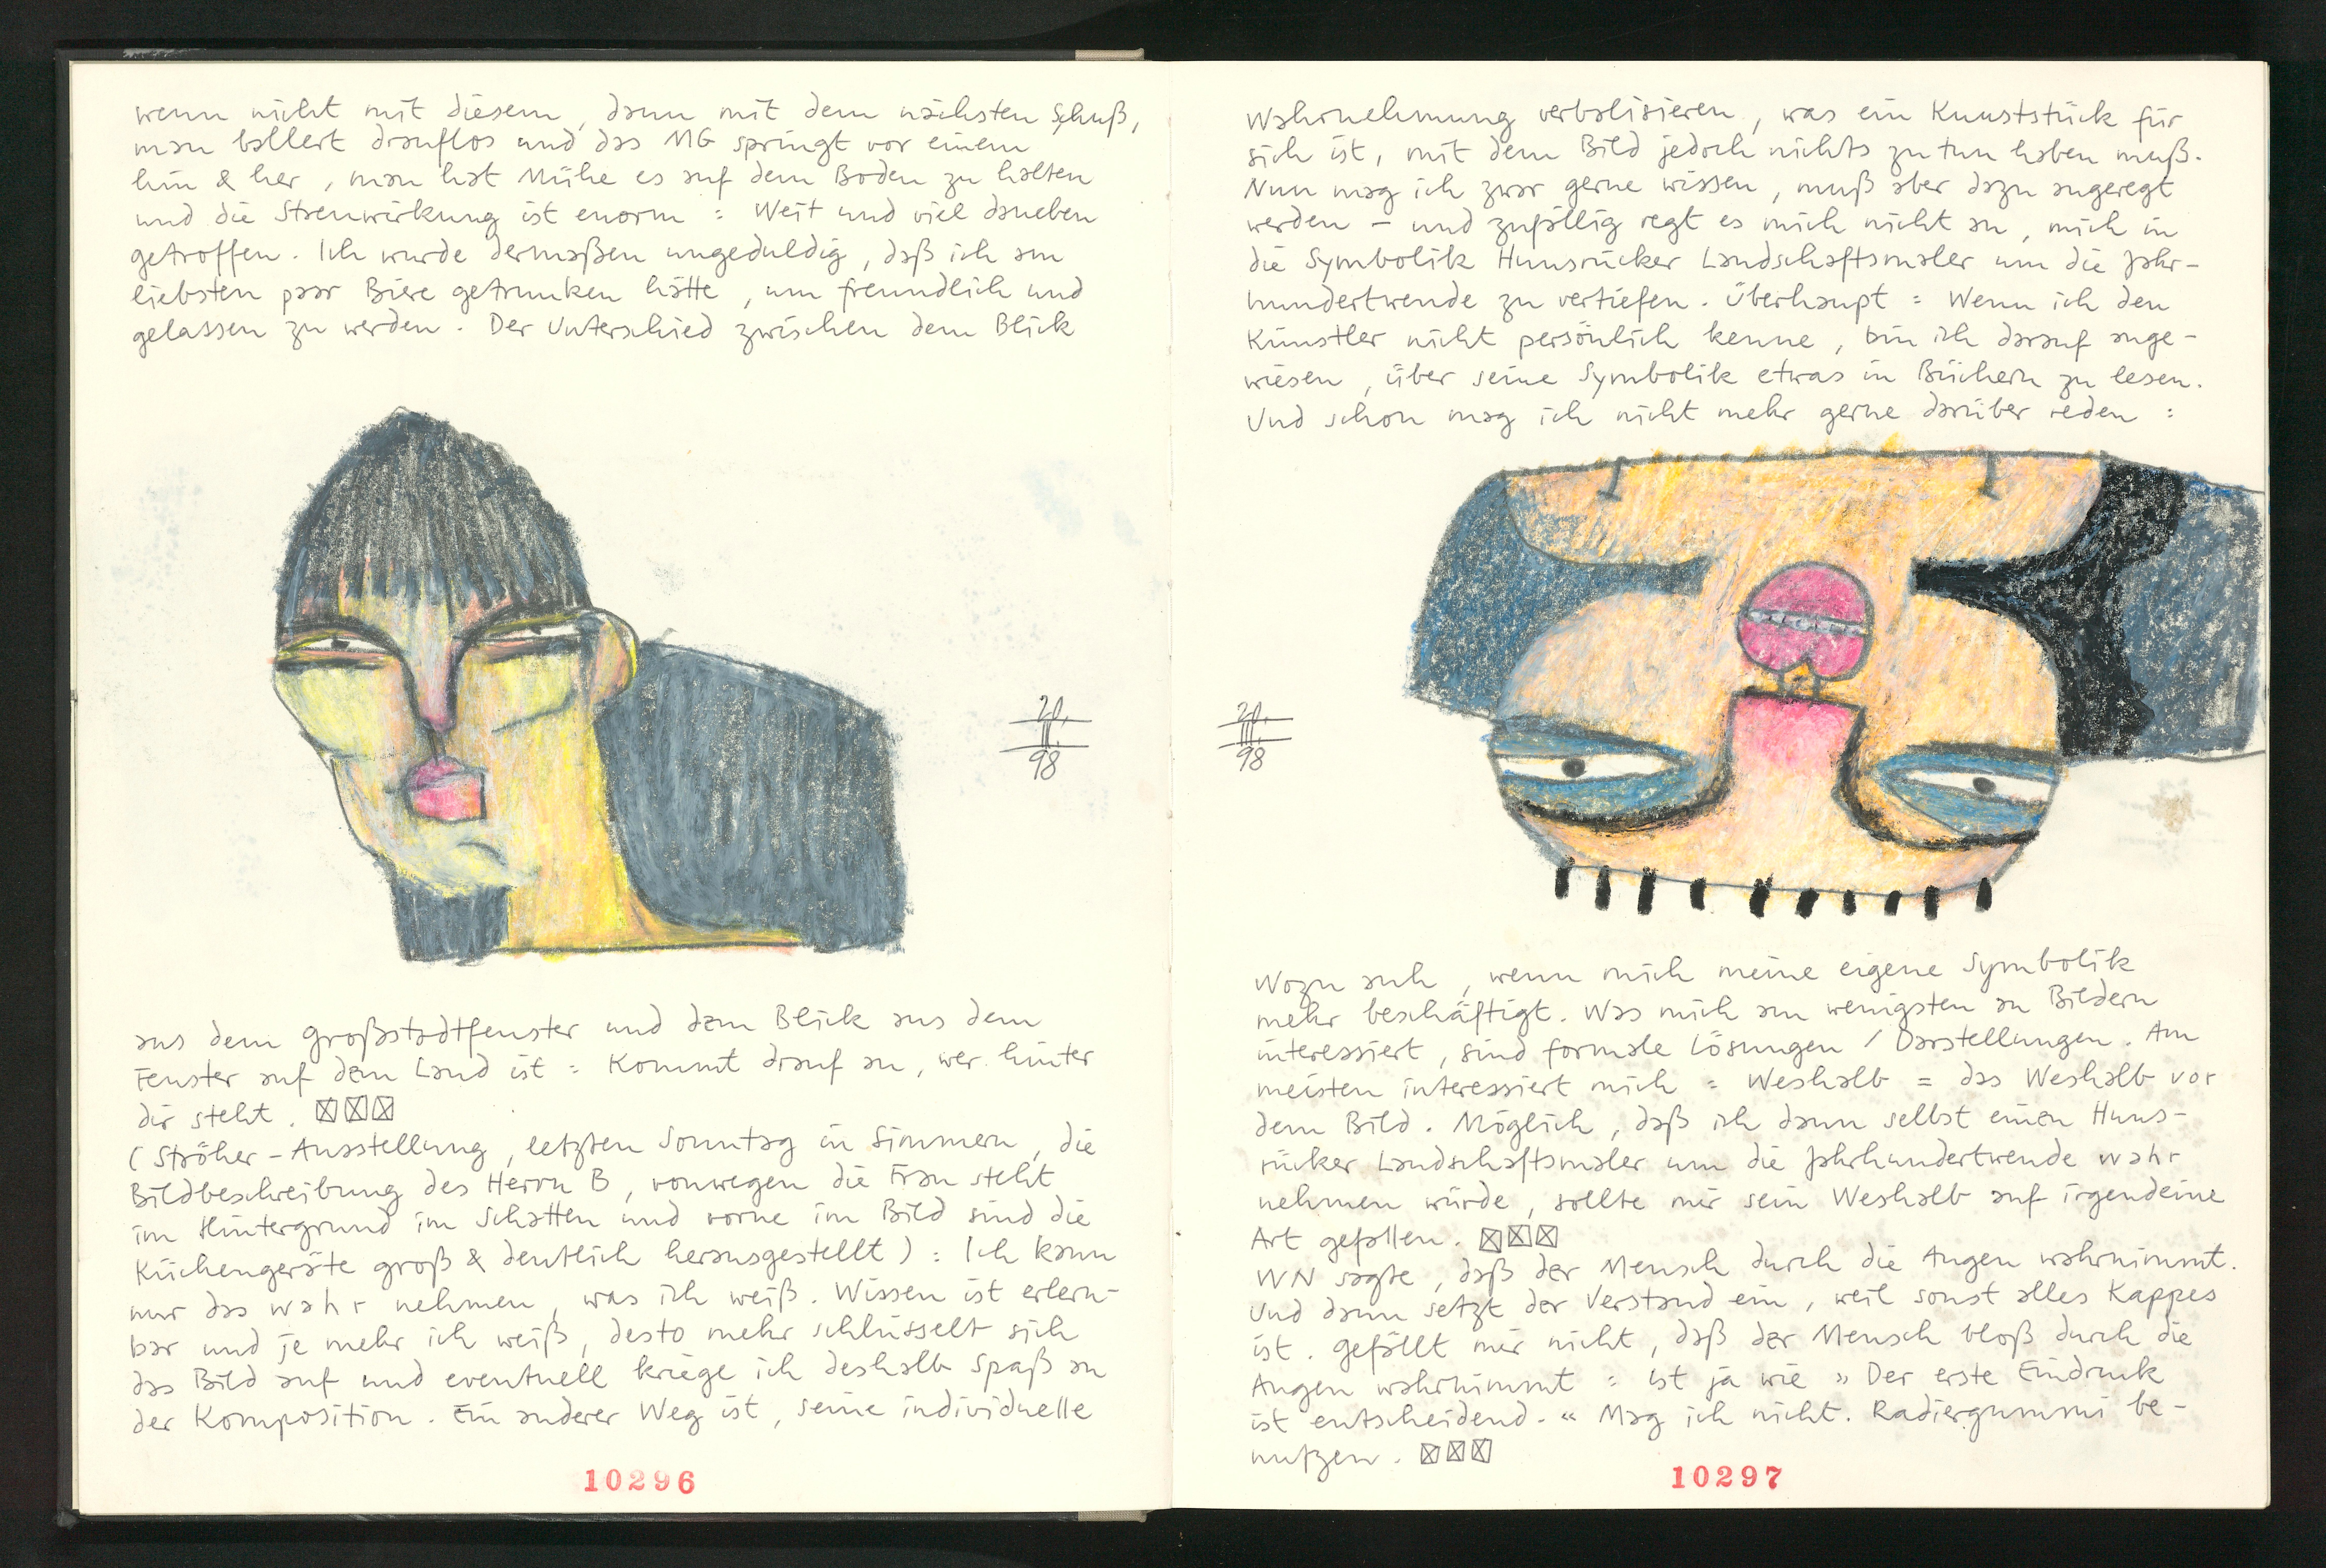 wenn nicht mit diesem, dann mit dem nächsten Schuß,
man ballert drauflos und das MG springt vor einem
hin & her, man hat Mühe es auf dem Boden zu halten
und die Streuwirkung ist enorm : Weit und viel daneben
getroffen. Ich wurde dermaßen ungeduldig, daß ich am
liebsten paar Biere getrunken hätte, um freundlich und
gelassen zu werden. Der Unterschied zwischen dem Blick
20.
98
aus dem Großstadtfenster und dem Blick aus dem
Fenster auf dem Land ist : Kommt drauf an, wer hinter
dir steht.
(Ströher-Ausstellung, letzten Sonntag in Simmern, die
Bildbeschreibung des Herrn B, vonwegen die Frau steht
im Hintergrund im Schatten und vorne im Bild sind die
Küchengeräte groß & deutlich herausgestellt) : Ich kann
nur das wahr nehmen, was ich weiß. Wissen ist erlern-
bar und je mehr ich weiß, desto mehr schlüsselt sich
das Bild auf und eventuell kriege ich deshalb Spaß an
der Komposition. Ein anderer Weg ist, seine individuelle
10296
Wahrnehmung verbalisieren, was ein Kunststück für
sich ist, mit dem Bild jedoch nichts zu tun haben muß.
Nun mag ich zwar gerne wissen, muß aber dazu angeregt
werden – und zufällig regt es mich nicht an, mich in
die Symbolik Hunsrücker Landschaftsmaler um die Jahr-
hundertwende zu vertiefen. Überhaupt : Wenn ich den
Künstler nicht persönlich kenne, bin ich darauf ange-
wiesen, über seine Symbolik etwas in Büchern zu lesen.
Und schon mag ich nicht mehr gerne darüber reden :
20.
98
Wozu auch, wenn mich meine eigene Symbolik
mehr beschäftigt. Was mich am wenigsten an Bildern
interessiert, sind formale Lösungen / Darstellungen. Am
meisten interessiert mich : Weshalb = das Weshalb vor
dem Bild. Möglich, daß ich dann selbst einen Huns-
rücker Landschaftsmaler um die Jahrhundertwende wahr
nehmen würde, sollte mir sein Weshalb auf irgendeine
Art gefallen.
WN sagte, daß der Mensch durch die Augen wahrnimmt.
Und dann setzt der Verstand ein, weil sonst alles Kappes
ist. Gefällt mir nicht, daß der Mensch bloß durch die
Augen wahrnimmt : ist ja wie »Der erste Eindruck
ist entscheidend.« Mag ich nicht. Radiergummi be-
nutzen.
10297